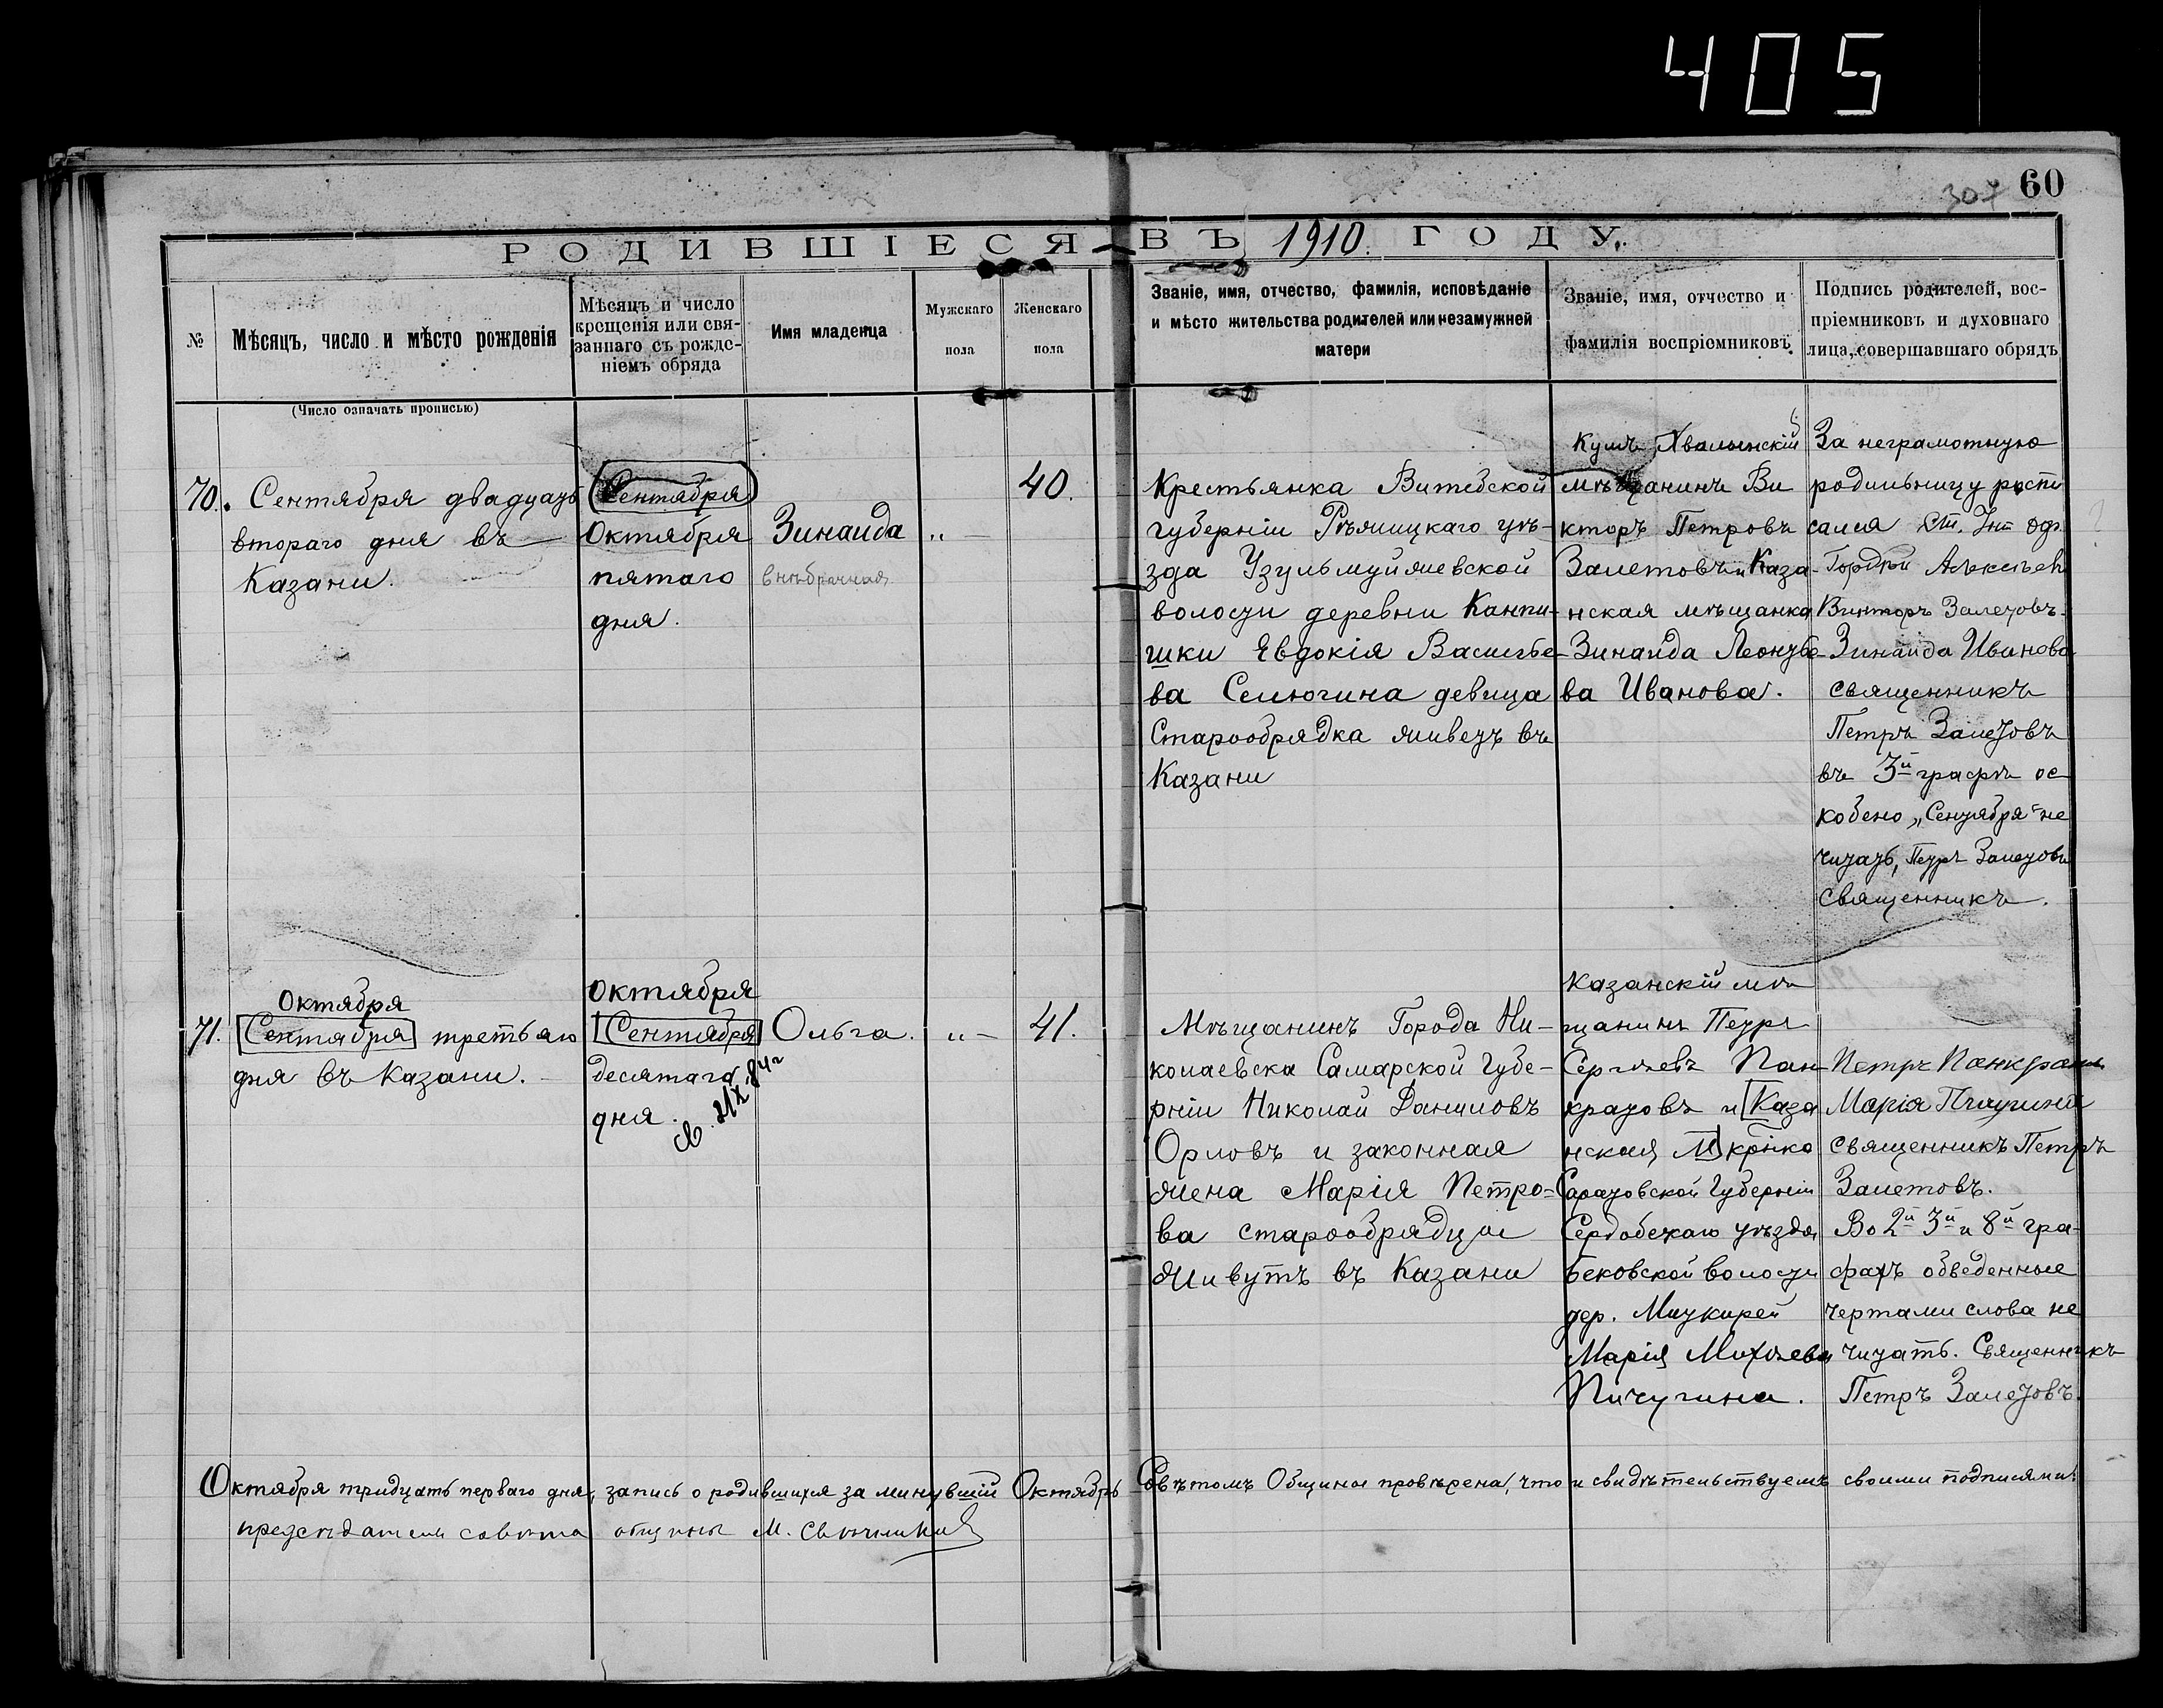 405
307 60
РОДИВШІЕСЯ ВЪ 1910. ГОДУ.
№
Мѣсяцъ, число и мѣсто рожденія
Мѣсяцъ и число
крещенія или свя-
заннаго съ рожде-
ніемъ обряда
Имя младенца
Мужскаго
пола
Женскаго
пола
Званіе, имя, отчество, фамилія, исповѣданіе
и мѣсто жительства родителей или незамужней
матери
Званіе, имя, отчество и
фамилія воспріемниковъ.
Подпись родителей, вос-
пріемниковъ и духовнаго
лица, совершавшаго обрядъ
(Число означать прописью)
70. Сентября двадцать
втораго дня въ
Казани.
Сентября
Октября
пятаго
дня.
Зинаида
внѣбрачная
„ —
40.
Крестьянка Витебской
губерніи Рѣжицкаго уѣ-
зда Узульмуйжевской
волости деревни Канпи-
шки Евдокія Василье-
ва Селюгина девица
Старообрядка живетъ въ
Казани
Кумъ Хвалынскій
мѣщанинъ Ви
кторъ Петровъ
Залетовъ и Каза-
нская мѣщанка
Зинаида Леонтье-
ва Иванова.
За неграмотную
родильницу распи
сался
Викторъ Залетовъ.
Зинаида Иванова
священникъ
Петръ Залетовъ
въ 3й графѣ ос
кобено „Сентября" не
читать, Петръ Залетовъ
священникъ.
71. Октября
Сентября третьяго
дня въ Казани.
Октября
Сентября
десятаго
дня.
Ольга.
„ —
41.
Мѣщанинъ Города Ни-
колаевска Самарской Губе-
рніи Николай Даниловъ
Орловъ и законная
жена Марія Петро-
ва старообрядцы
живутъ въ Казани
Казанскій мѣ
щанинъ Петръ
Сергѣевъ Пан
кратовъ и Каза
нская М крѣнка
Саратовской Губерніи
Сердобскаго уѣзда
Бековской волости
дер. Миткирей
Марія Михѣева
Пичугина.
Петръ Панкратовъ
Марія Пичугина
священникъ Петръ
Залетовъ.
Во 2й 3й и 8й гра-
фахъ обведенные
чертами слова не
читать. Священникъ
Петръ Залетовъ.
Октября тридцать перваго дня, запись о родившихся за минувшій Октябрь Совѣтомъ Общины провѣрена, что и свидѣтельствуемъ своими подписями:
председатель совѣта общины М.